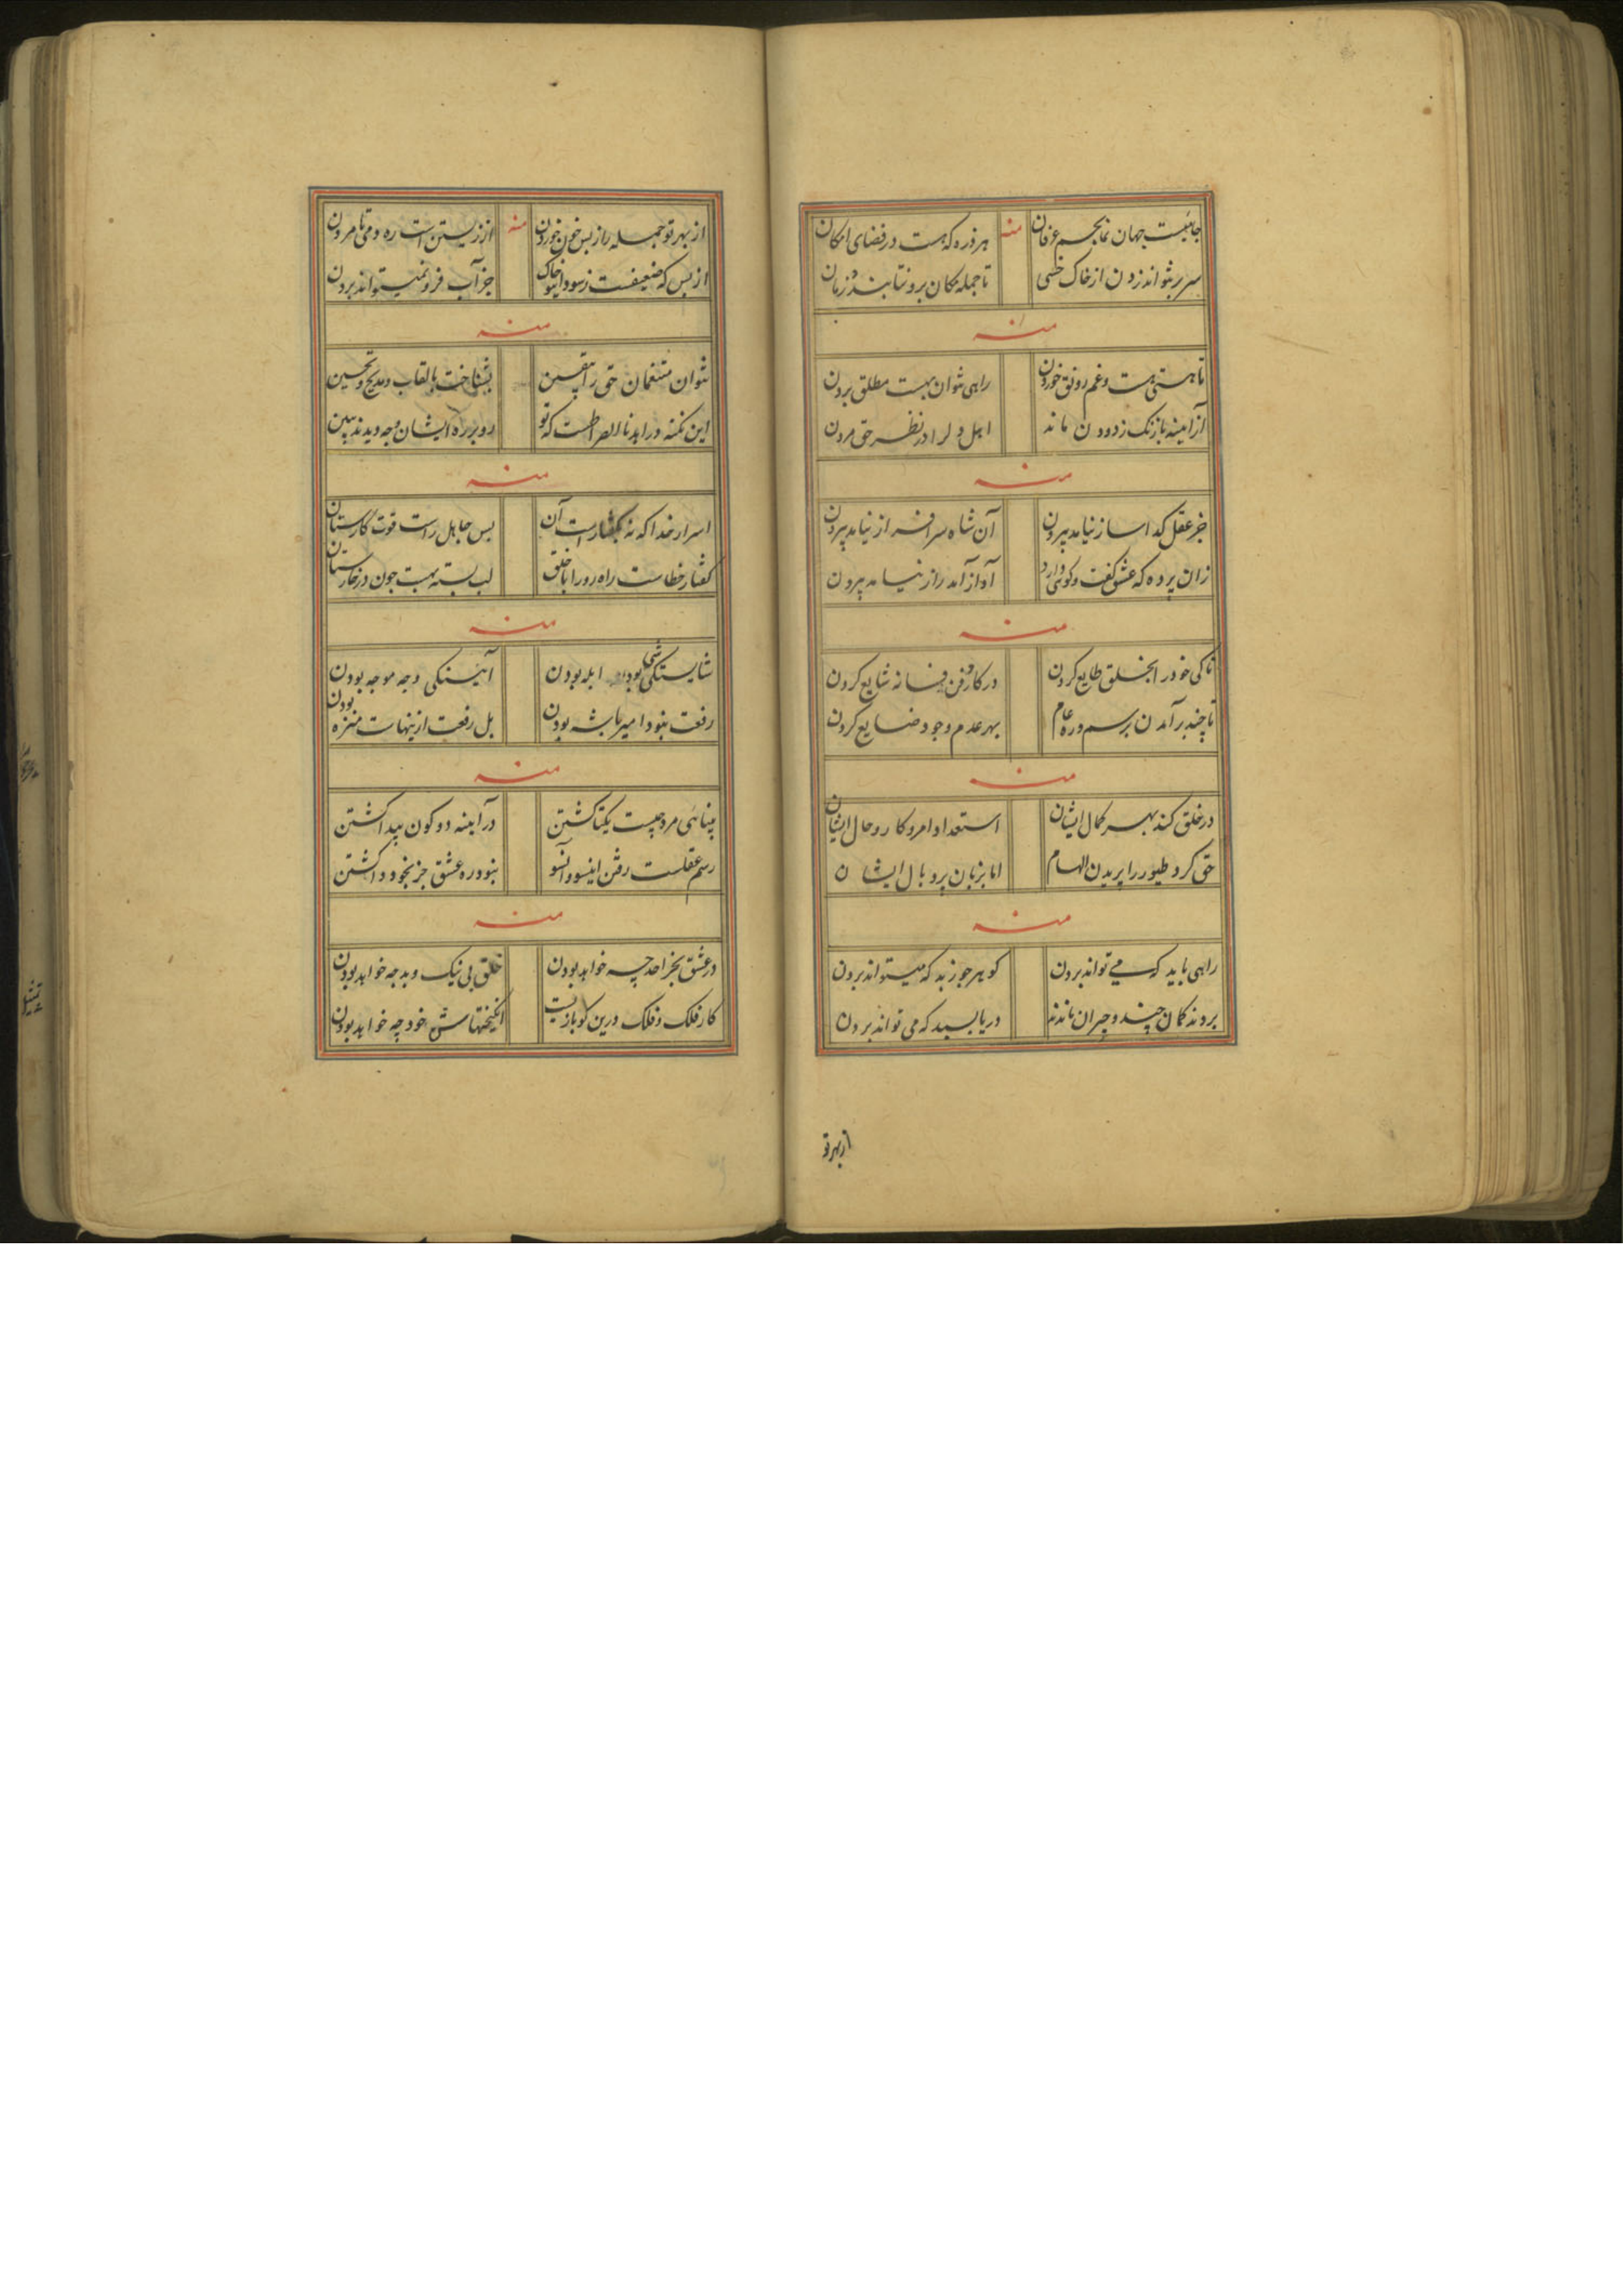 جائیست جهان نمای چشم عرفان منه هر ذره که هست در فضای امکان
سر بر نتواند زدن از خاک خسی تا جمله مکان برو نتابند و زمان
منه
تا هستی هست و غم رونق خوردن راهی نتوان بهست مطلق بردن
از آینه با زنک زدودن ماند اهل دل را در نظر حق مردن
منه
جز عقل کدا ساز نیامد بیرون آن شاه سرافراز نیامد بیرون
زان پرده که عشق گفت و کوئی دارد آواز آمد راز نیامد بیرون
منه
تا کی خود را بخلق طایع کردن در کار و فن فسانه شایع کردن
تا چند برآمدن برسم و ره عام بهر عدم وجود ضایع کردن
منه
در خلق کند بهر کمال ایشان استعداد امر و کار و حال ایشان
حق کرد طیور را پریدن الهام اما بزبان پر و بال ایشان
منه
راهی باید که می تواند بردن کو هر جو زبد که میتواند بردن
بردند کمان چند و حیران ماندند دریا بسبد که می تواند بردن
از بهر تو
از بهر تو جمله راز بس خون خوردن منه از زیستن است ره دمی تا مردن
از بس که ضعیفست ز سودا خاک جز آب فرو نمیتواند بردن
منه
نتوان متنعمان حق را بیقین بشناخت بالقاب و مدیح و تحسین
این نکته در اهدنا الصراطست که تو رو بر ره ایشان و چه دیدند ببین
منه
اسرار خدا که نه بگفتارست آن بس جاهل راست قوت کارستان
گفتار خطاست راه رو را با خلق لب بسته بهست چون در خارستان
منه
شایستگی شهی بود ابله بودن آهستگی وجه موجه بودن
رفعت نبود امیر یا شه بودن بل رفعت ازینهاست منزه بودن
منه
بینائی مرد چیست یکتا گشتن در آینه دو کون پیدا گشتن
رسم عقلست رفتن اینسو و آنسو نبود ره عشق جز بخود وا گشتن
منه
در عشق بجز احد چه خواهد بودن خلق بی نیک و بد چه خواهد بودن
کار فلک و فلک درین کو بازیست انگیختهاش خود چه خواهد بودن